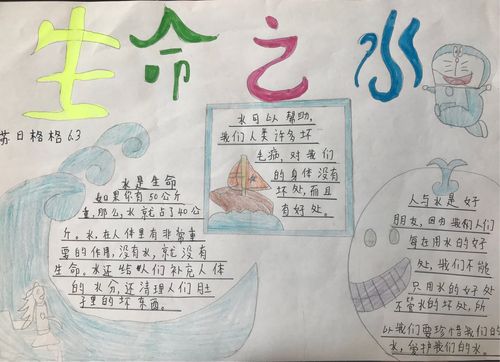 生命之水
苏日格格 6.3
水是生命
如果你有50公斤
重,那么,水就占了40公
斤。水,在人体里有非常重
要的作用,没有水,就没有
生命。水还给人们补充人体
的水分,还清理人们肚
子里的坏东西。
水可以帮助,
我们人类许多坏
毛病,对我们
的身体没有
坏处,而且
有好处。
人与水是好
朋友,因为我们人们
每在用水的好
处,我们不能
只用水的好处
不管水的坏处,所
以我们要珍惜我们的
水,爱护我们的水。